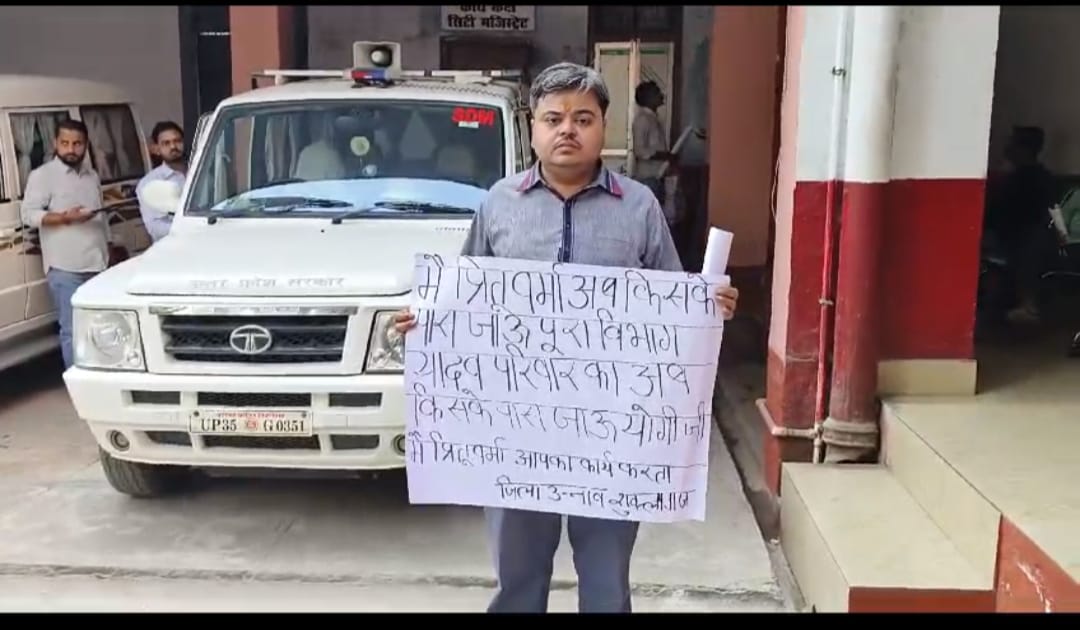 कार्य कक्ष
सिटी मजिस्ट्रेट
SDM
उत्तर प्रदेश सरकार
TATA
UP35 G0351
मै प्रितू वर्मा अब किसके
पास जाऊ पूरा विभाग
यादव परिवार का अब
किसके पास जाऊ योगी जी
मै प्रितू वर्मा आपका कार्य करता
जिला उन्नाव शुक्लागंज